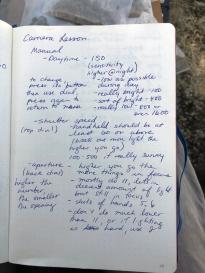 Camera Lesson
Manual
- Daytime - ISO
(sensitivity
higher @ night)
to change, - low as possible
press button during day
then use dial, - really bright - 100
press again to - sort of bright - 400
return to - really low - 800 or
even 1600
- shutter speed
(top dial) - handheld should be at
least 60 or above
more light the
higher you go)
100-500 if really sunny
- aperture - higher you go the
(back dial) more things in focus
higher the - mostly do 11, lets
number, decent amount of light
the smaller but still in focus
the opening - shots of hands 5.6
- don't do much lower
than 11, or if lighting
is hard, use 8